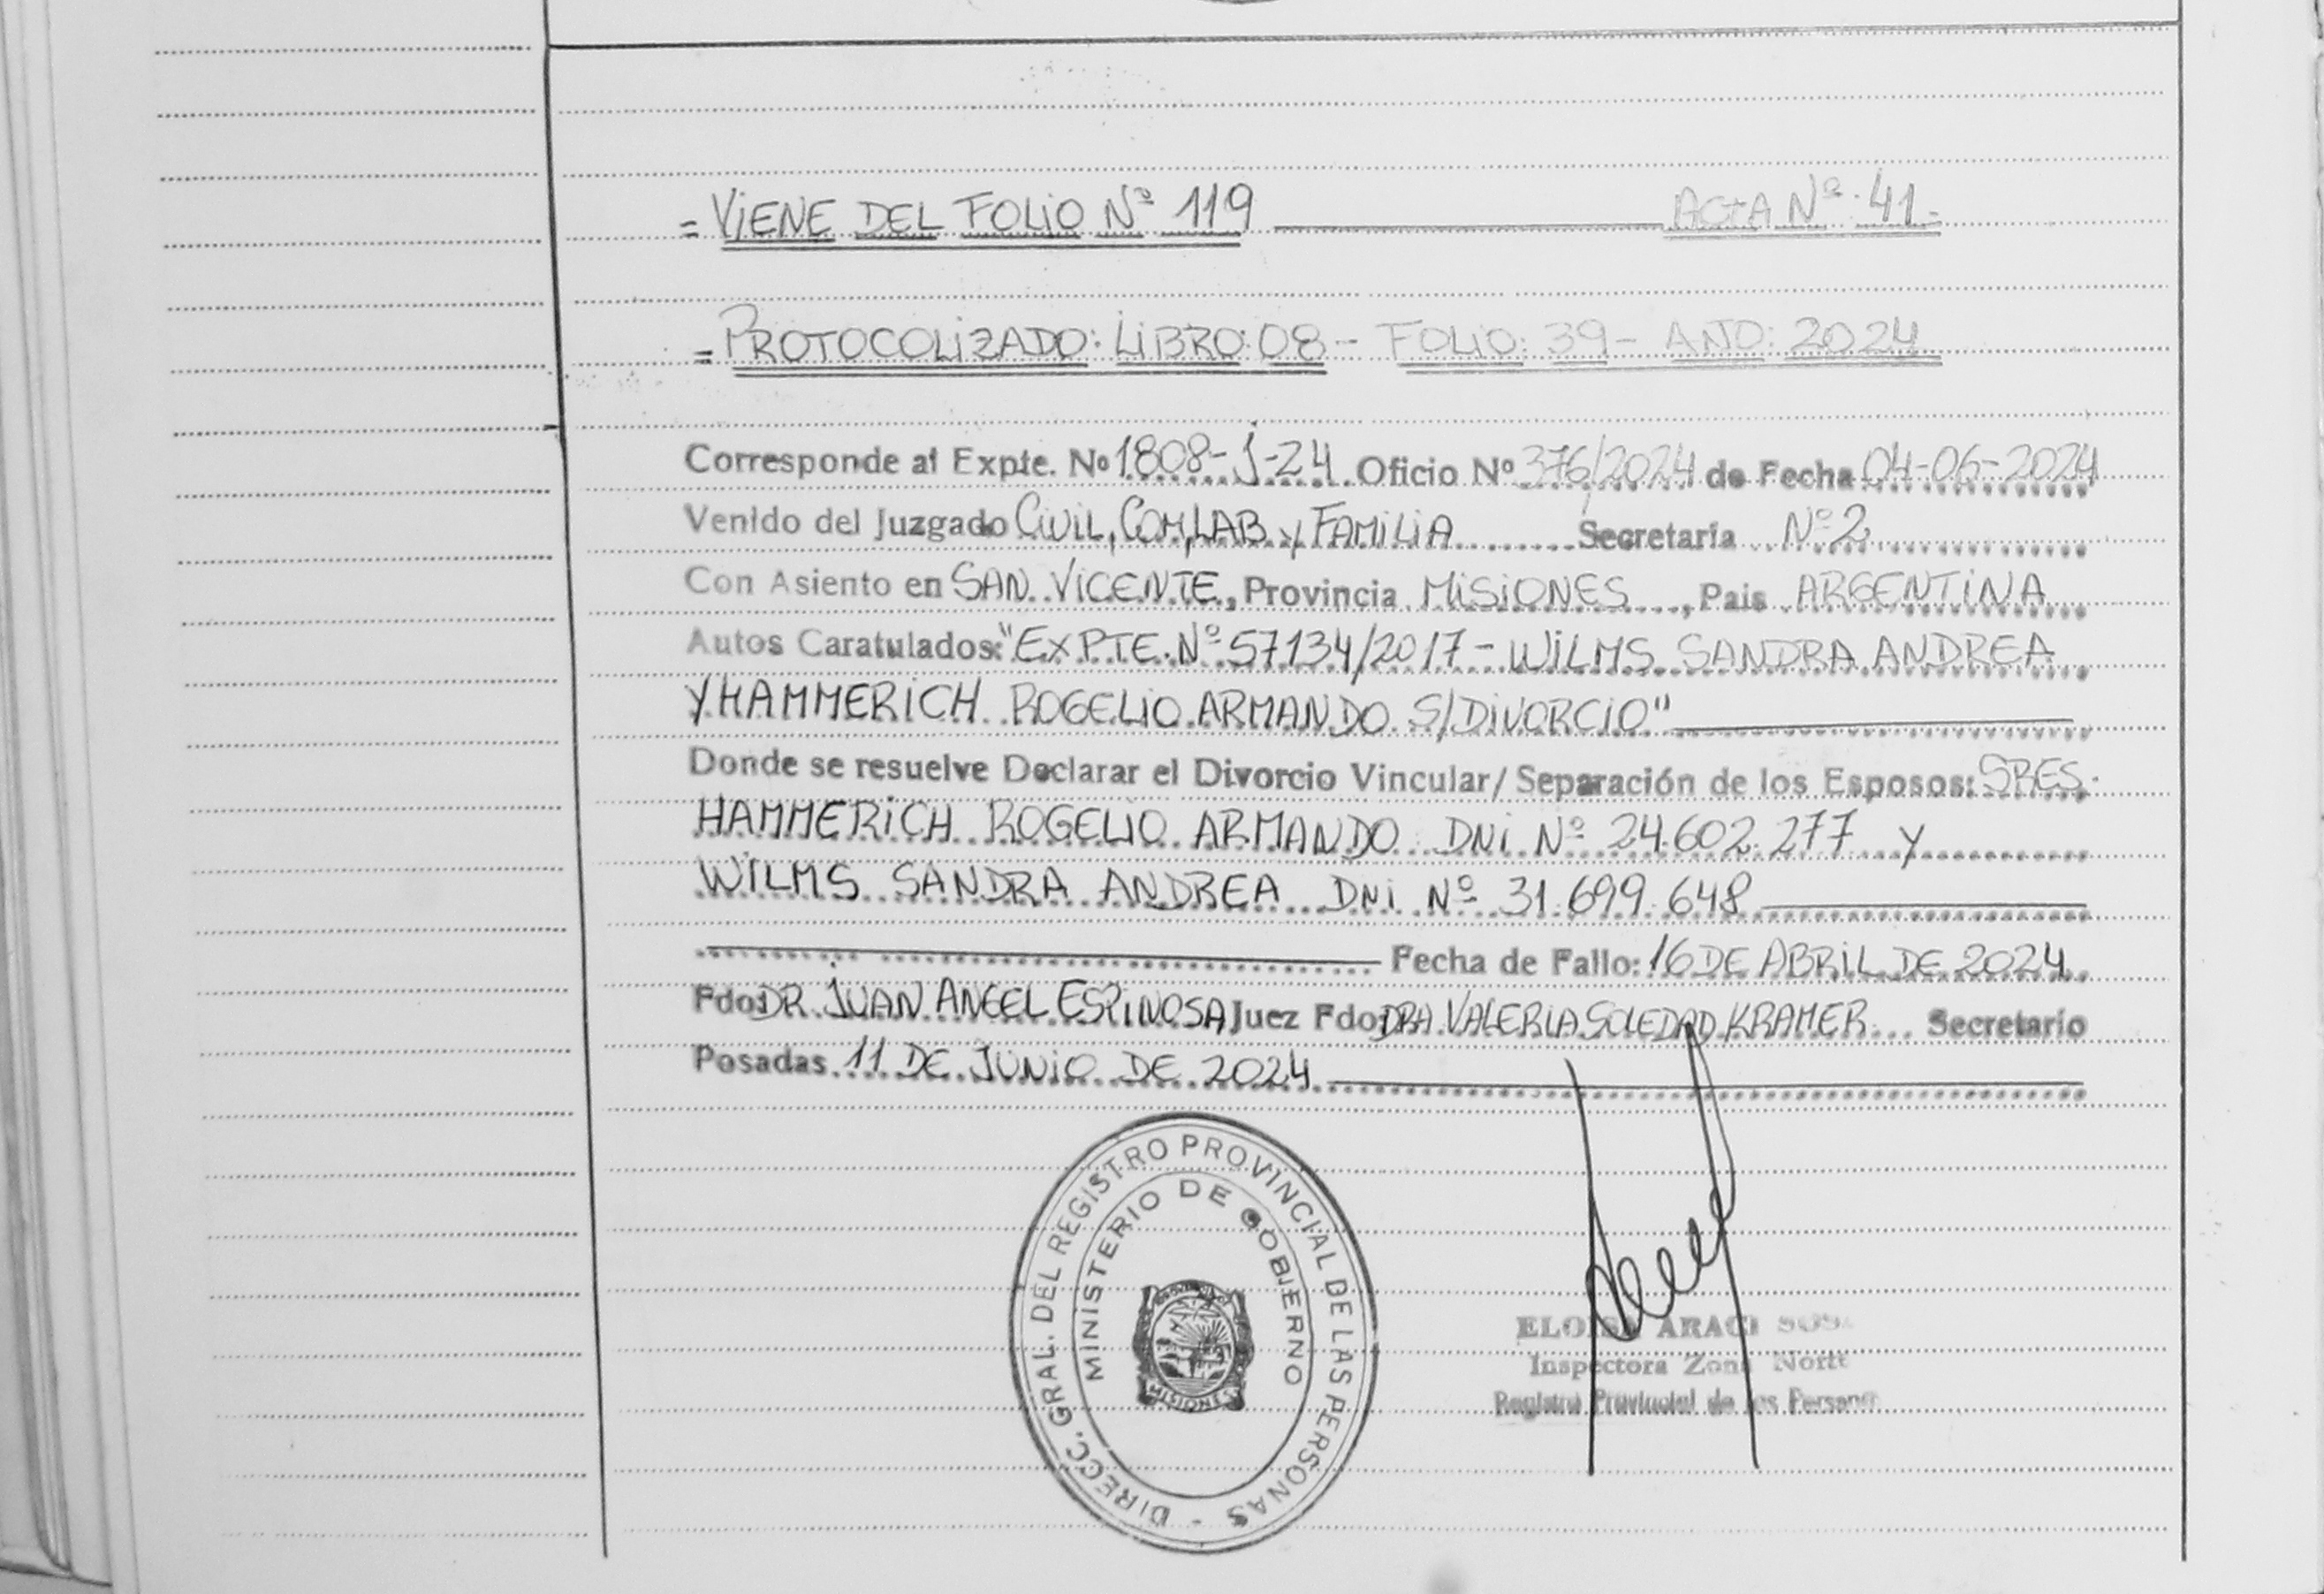 = VIENE DEL FOLIO Nº 119 ACTA Nº 41-
= PROTOCOLIZADO: LIBRO: 08 - FOLIO: 39 - AÑO: 2024
Corresponde al Expte. Nº 1808-J-24 Oficio Nº 376/2024 de Fecha 04-06-2024
Venido del Juzgado CIVIL, COM, LAB y FAMILIA Secretaría Nº 2
Con Asiento en SAN VICENTE, Provincia MISIONES, Pais ARGENTINA
Autos Caratulados: "EXPTE. Nº 57134/2017 - WILMS SANDRA ANDREA
Y HAMMERICH ROGELIO ARMANDO S/DIVORCIO"
Donde se resuelve Declarar el Divorcio Vincular/Separación de los Esposos: SRES.
HAMMERICH ROGELIO ARMANDO DNI Nº 24.602.277 y
WILMS SANDRA ANDREA DNI Nº 31.699.648
Fecha de Fallo: 16 DE ABRIL DE 2024
Fdo: DR. JUAN ANGEL ESPINOSA Juez Fdo: DRA. VALERIA SOLEDAD KRAMER Secretario
Posadas 11 DE JUNIO DE 2024
DIRECC. GRAL. DEL REGISTRO PROVINCIAL DE LAS PERSONAS -
MINISTERIO DE GOBIERNO
MISIONES
ELOISA ARACI SOSA
Inspectora Zona Norte
Registro Provincial de las Personas